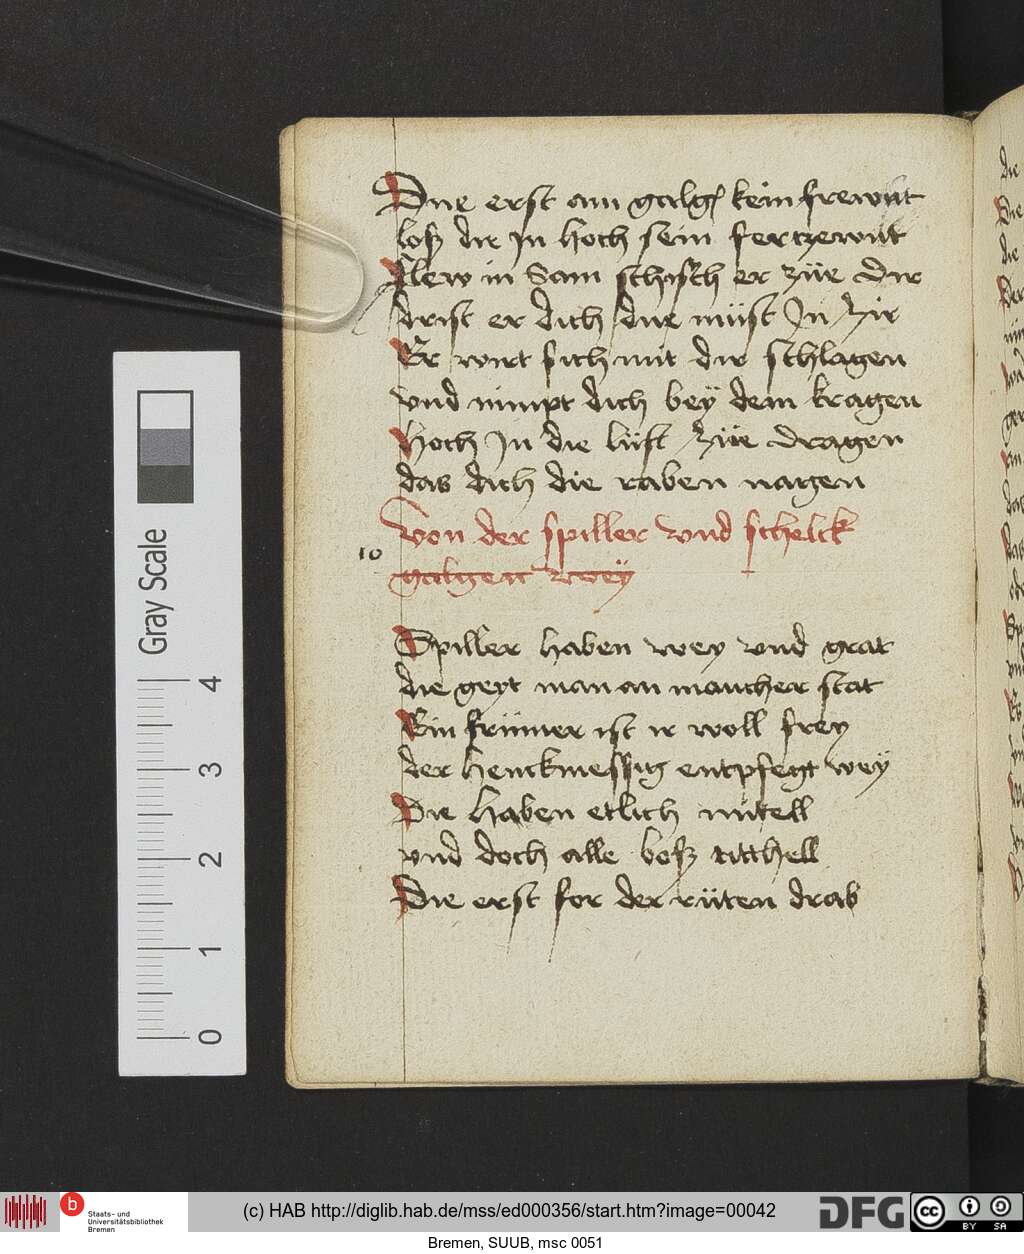 Due erst am galg kein frewnt
loß die Jn hoch sein ferczewnt
flew in Sam schisch er züe Dir
drist er dich due müst Jn Zir
Er wirt sich mit dir schlagen
vnd nimpt dich bey dem kragen
hoch Jn die lüft züe dragen
das dich die raben nagen
Von der spiller vnd schelck
10
galgen wey
Spiller haben wey vnd grat
die geyt man an mancher stat
Ein frümer ist ir woll frey
der henckmessig entpfegt wey
Die haben etlich mitell
vnd doch alle boß titthell
Die erst for der rüten drab
Gray Scale
4
3
2
1
0
b
Staats- und
Universitätsbibliothek
Bremen
(c) HAB http://diglib.hab.de/mss/ed000356/start.htm?image=00042
DFG
cc
BY SA
Bremen, SUUB, msc 0051